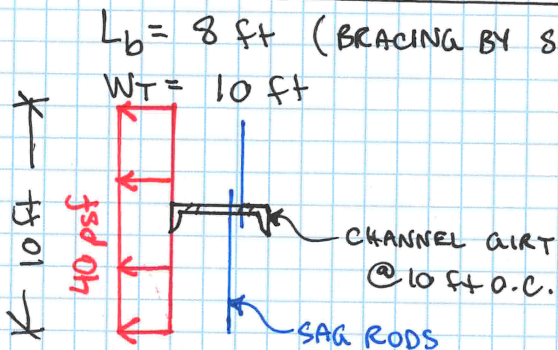 Lb = 8 ft (BRACING BY 8
WT = 10 ft
10 ft
40 psf
CHANNEL GIRT
@ 10 ft O.C.
SAG RODS